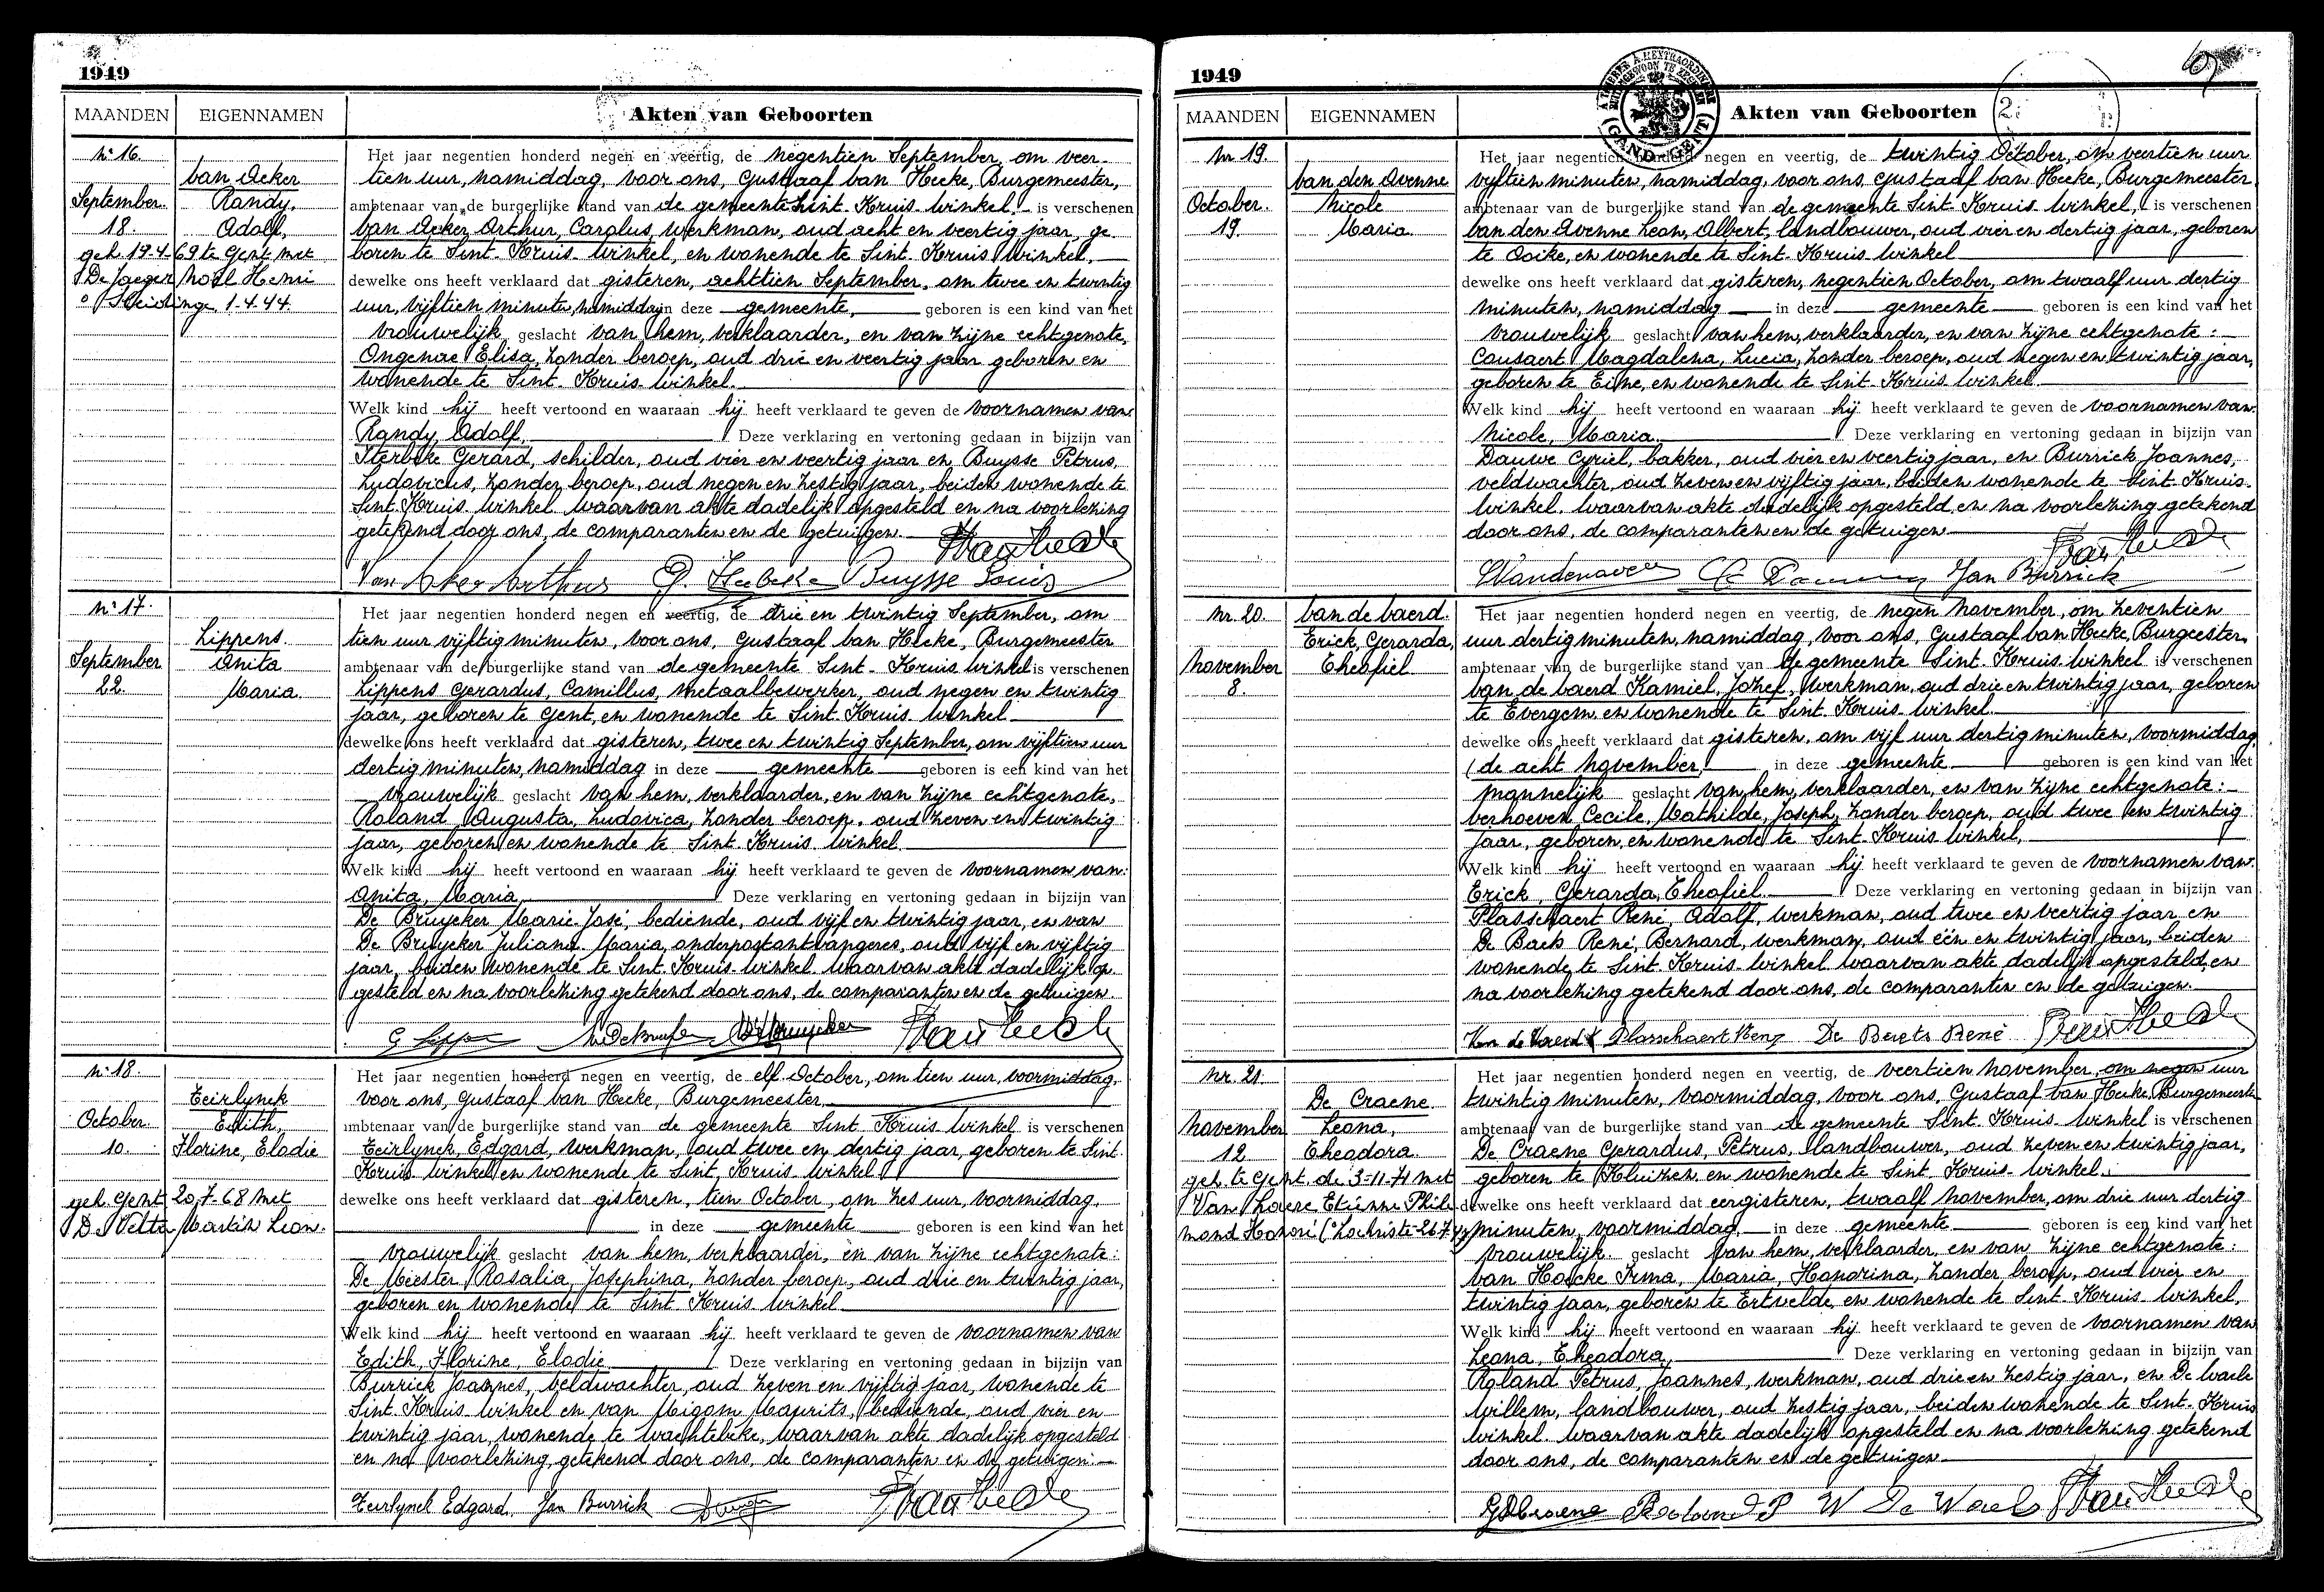 1949
MAANDEN EIGENNAMEN Akten van Geboorten
Nr 16.
Van Acker
September Randy,
18. Adolf,
geh. 19-4-69 te Gent met
De Jaeger Noël Henri
° Sleidinge 1.4.44.
Het jaar negentien honderd negen en veertig, de negentien September, om veer-
tien uur, namiddag, voor ons, Gustaaf Van Hecke, Burgemeester,
ambtenaar van de burgerlijke stand van de gemeente Sint-Kruis-Winkel, is verschenen
Van Acker Arthur, Carolus, werkman, oud acht en veertig jaar, ge-
boren te Sint-Kruis-Winkel, en wonende te Sint-Kruis-Winkel,
dewelke ons heeft verklaard dat gisteren, achttien September, om twee en twintig
uur, vijftien minuten, namiddag in deze gemeente, geboren is een kind van het
vrouwelijk geslacht van hem, verklaarder, en van zijne echtgenote,
Ongenae Elisa, zonder beroep, oud drie en veertig jaar geboren en
wonende te Sint-Kruis-Winkel.
Welk kind hij heeft vertoond en waaraan hij heeft verklaard te geven de voornamen van
Randy, Adolf. Deze verklaring en vertoning gedaan in bijzijn van
Sterbeke Gerard, schilder, oud vier en veertig jaar en Buysse Petrus,
Ludovicus, zonder beroep, oud negen en zestig jaar, beiden wonende te
Sint-Kruis-Winkel waarvan akte dadelijk opgesteld en na voorlezing
getekend door ons, de comparanten en de getuigen.
Van Acker Arthur Buysse Louis
Nr 17.
Lippens.
September Anita
22. Maria.
Het jaar negentien honderd negen en veertig, de drie en twintig September, om
tien uur vijftig minuten, voor ons, Gustaaf Van Hecke, Burgemeester
ambtenaar van de burgerlijke stand van de gemeente Sint-Kruis-Winkel is verschenen
Lippens Gerardus, Camillus, metaalbewerker, oud negen en twintig
jaar, geboren te Gent, en wonende te Sint-Kruis-Winkel
dewelke ons heeft verklaard dat gisteren, twee en twintig September, om vijftien uur
dertig minuten, namiddag in deze gemeente geboren is een kind van het
vrouwelijk geslacht van hem, verklaarder, en van zijne echtgenote,
Roland Augusta, Ludovica, zonder beroep, oud zeven en twintig
jaar, geboren en wonende te Sint-Kruis-Winkel.
Welk kind hij heeft vertoond en waaraan hij heeft verklaard te geven de voornamen van:
Anita, Maria Deze verklaring en vertoning gedaan in bijzijn van
De Bruycker Marie-José, bediende, oud vijf en twintig jaar, en van
De Bruycker Juliana Maria, onderpostontvangeres, oud vijf en vijftig
jaar, beiden wonende te Sint-Kruis-Winkel waarvan akte dadelijk op-
gesteld en na voorlezing getekend door ons, de comparanten en de getuigen.
G. Lippens
Nr 18.
Teirlynck
October Edith,
10. Florine, Elodie
geh. Gent 20-7-68 met
De Vette Martin Leon.
Het jaar negentien honderd negen en veertig, de elf October, om tien uur, voormiddag,
voor ons, Gustaaf Van Hecke, Burgemeester,
ambtenaar van de burgerlijke stand van de gemeente Sint-Kruis-Winkel is verschenen
Teirlynck, Edgard, werkman, oud twee en dertig jaar, geboren te Sint-
Kruis-Winkel en wonende te Sint-Kruis-Winkel
dewelke ons heeft verklaard dat gisteren, tien October, om zes uur, voormiddag,
in deze gemeente geboren is een kind van het
vrouwelijk geslacht van hem, verklaarder, en van zijne echtgenote:
De Meester Rosalia, Josephina, zonder beroep, oud drie en twintig jaar,
geboren en wonende te Sint-Kruis-Winkel
Welk kind hij heeft vertoond en waaraan hij heeft verklaard te geven de voornamen van
Edith, Florine, Elodie Deze verklaring en vertoning gedaan in bijzijn van
Burrick Joannes, veldwachter, oud zeven en vijftig jaar, wonende te
Sint-Kruis-Winkel en van Migom Maurits, bediende, oud vier en
twintig jaar, wonende te Wachtebeke, waarvan akte dadelijk opgesteld
en na voorlezing, getekend door ons, de comparanten en de getuigen.
Teirlynck Edgard. Jan Burrick
1949
MAANDEN EIGENNAMEN Akten van Geboorten
Nr 19.
Van den Avenne
October. Nicole
19. Maria.
Het jaar negentien honderd negen en veertig, de twintig October, om veertien uur
vijftien minuten, namiddag, voor ons, Gustaaf Van Hecke, Burgemeester
ambtenaar van de burgerlijke stand van de gemeente Sint-Kruis-Winkel, is verschenen
Van den Avenne Leon, Albert, landbouwer, oud vier en dertig jaar, geboren
te Ooike, en wonende te Sint-Kruis-Winkel
dewelke ons heeft verklaard dat gisteren, negentien October, om twaalf uur dertig
minuten, namiddag in deze gemeente geboren is een kind van het
vrouwelijk geslacht van hem, verklaarder, en van zijne echtgenote:
Cousaert Magdalena, Lucia, zonder beroep, oud negen en twintig jaar,
geboren te Eine, en wonende te Sint-Kruis-Winkel
Welk kind hij heeft vertoond en waaraan hij heeft verklaard te geven de voornamen van:
Nicole, Maria Deze verklaring en vertoning gedaan in bijzijn van
Dauwe Cyriel, bakker, oud vier en veertig jaar, en Burrick Joannes,
veldwachter, oud zeven en vijftig jaar, beiden wonende te Sint-Kruis-
Winkel. Waarvan akte dadelijk opgesteld en na voorlezing getekend
door ons, de comparanten en de getuigen
Jan Burrick
Nr 20. Van de Vaerd.
Erick, Gerarda,
November Theofiel
8.
Het jaar negentien honderd negen en veertig, de negen November, om zeventien
uur dertig minuten, namiddag, voor ons, Gustaaf Van Hecke, Burgeester,
ambtenaar van de burgerlijke stand van de gemeente Sint-Kruis-Winkel is verschenen
Van de Vaerd Kamiel, Jozef, werkman, oud drie en twintig jaar, geboren
te Evergem en wonende te Sint-Kruis-Winkel
dewelke ons heeft verklaard dat gisteren, om vijf uur dertig minuten, voormiddag,
(de acht November, in deze gemeente geboren is een kind van het
mannelijk geslacht van hem, verklaarder, en van zijne echtgenote:
Verhoeven Cecile, Mathilde, Joseph, zonder beroep, oud twee en twintig
jaar, geboren, en wonende te Sint-Kruis-Winkel,
Welk kind hij heeft vertoond en waaraan hij heeft verklaard te geven de voornamen van:
Erick, Gerarda, Theofiel Deze verklaring en vertoning gedaan in bijzijn van
Plasschaert René, Adolf, werkman, oud twee en veertig jaar, en
De Baets René, Bernard, werkman, oud één en twintig jaar, beiden
wonende te Sint-Kruis-Winkel waarvan akte dadelijk opgesteld, en
na voorlezing getekend door ons, de comparanten en de getuigen.
Van de Vaerd K Plasschaert Rene De Baets René
Nr 21.
De Craene
November Leona,
12 Theodora.
geh. te Gent de 3-11-71 met
Van Loere Etienne Phile-
mond Honoré (° Lochristi-26-7-47)
Het jaar negentien honderd negen en veertig, de veertien November, om negen uur
twintig minuten, voormiddag, voor ons, Gustaaf Van Hecke, Burgemeester
ambtenaar van de burgerlijke stand van de gemeente Sint-Kruis-Winkel is verschenen
De Craene Gerardus, Petrus, landbouwer, oud zeven en twintig jaar,
geboren te Kluizen en wonende te Sint-Kruis-Winkel.
dewelke ons heeft verklaard dat eergisteren, twaalf November, om drie uur dertig
minuten, voormiddag, in deze gemeente geboren is een kind van het
vrouwelijk geslacht van hem, verklaarder, en van zijne echtgenote:
Van Hoecke Irma, Maria, Honorina, zonder beroep, oud vier en
twintig jaar, geboren te Ertvelde, en wonende te Sint-Kruis-Winkel,
Welk kind hij heeft vertoond en waaraan hij heeft verklaard te geven de voornamen van
Leona, Theodora, Deze verklaring en vertoning gedaan in bijzijn van
Roland Petrus, Joannes, werkman, oud drie en zestig jaar, en De Waele
Willem, landbouwer, oud zestig jaar, beiden wonende te Sint-Kruis
Winkel waarvan akte dadelijk opgesteld en na voorlezing getekend
door ons, de comparanten en de getuigen
G De Craene Roland P W De Waele